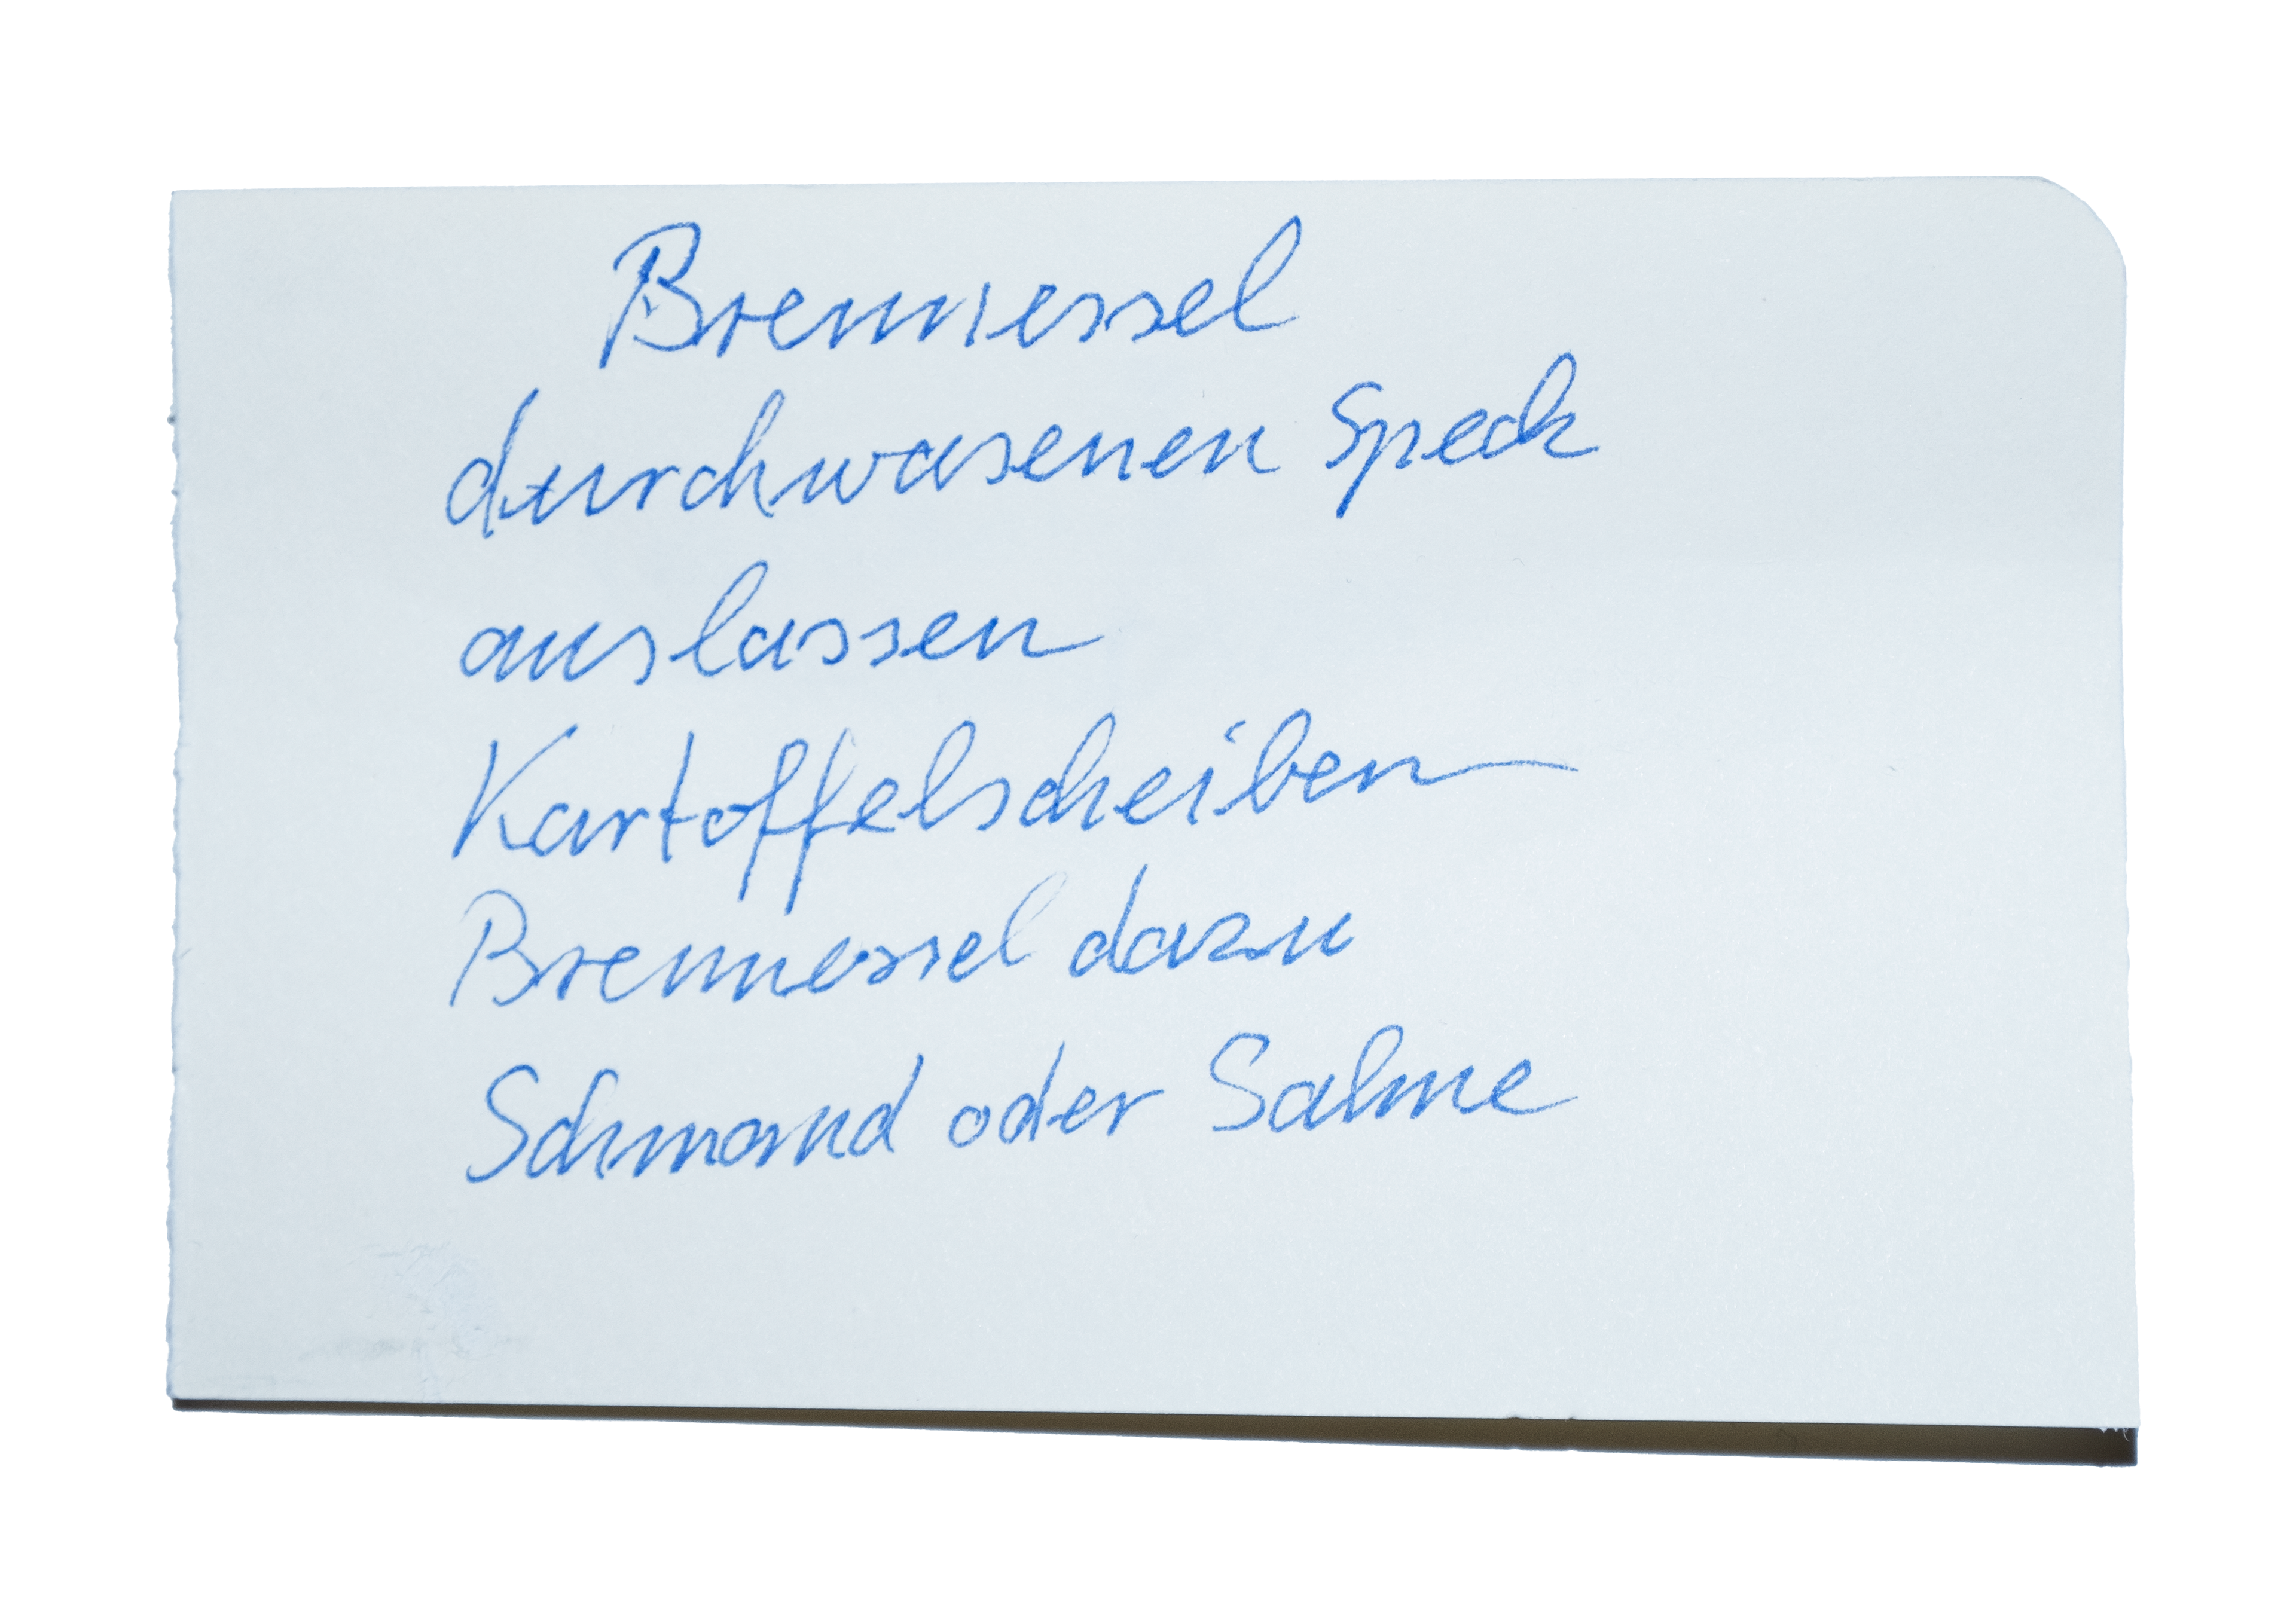 Brennessel
durchwasenen Speck
auslassen
Kartoffelscheiben
Brennessel dazu
Schmand oder Sahne